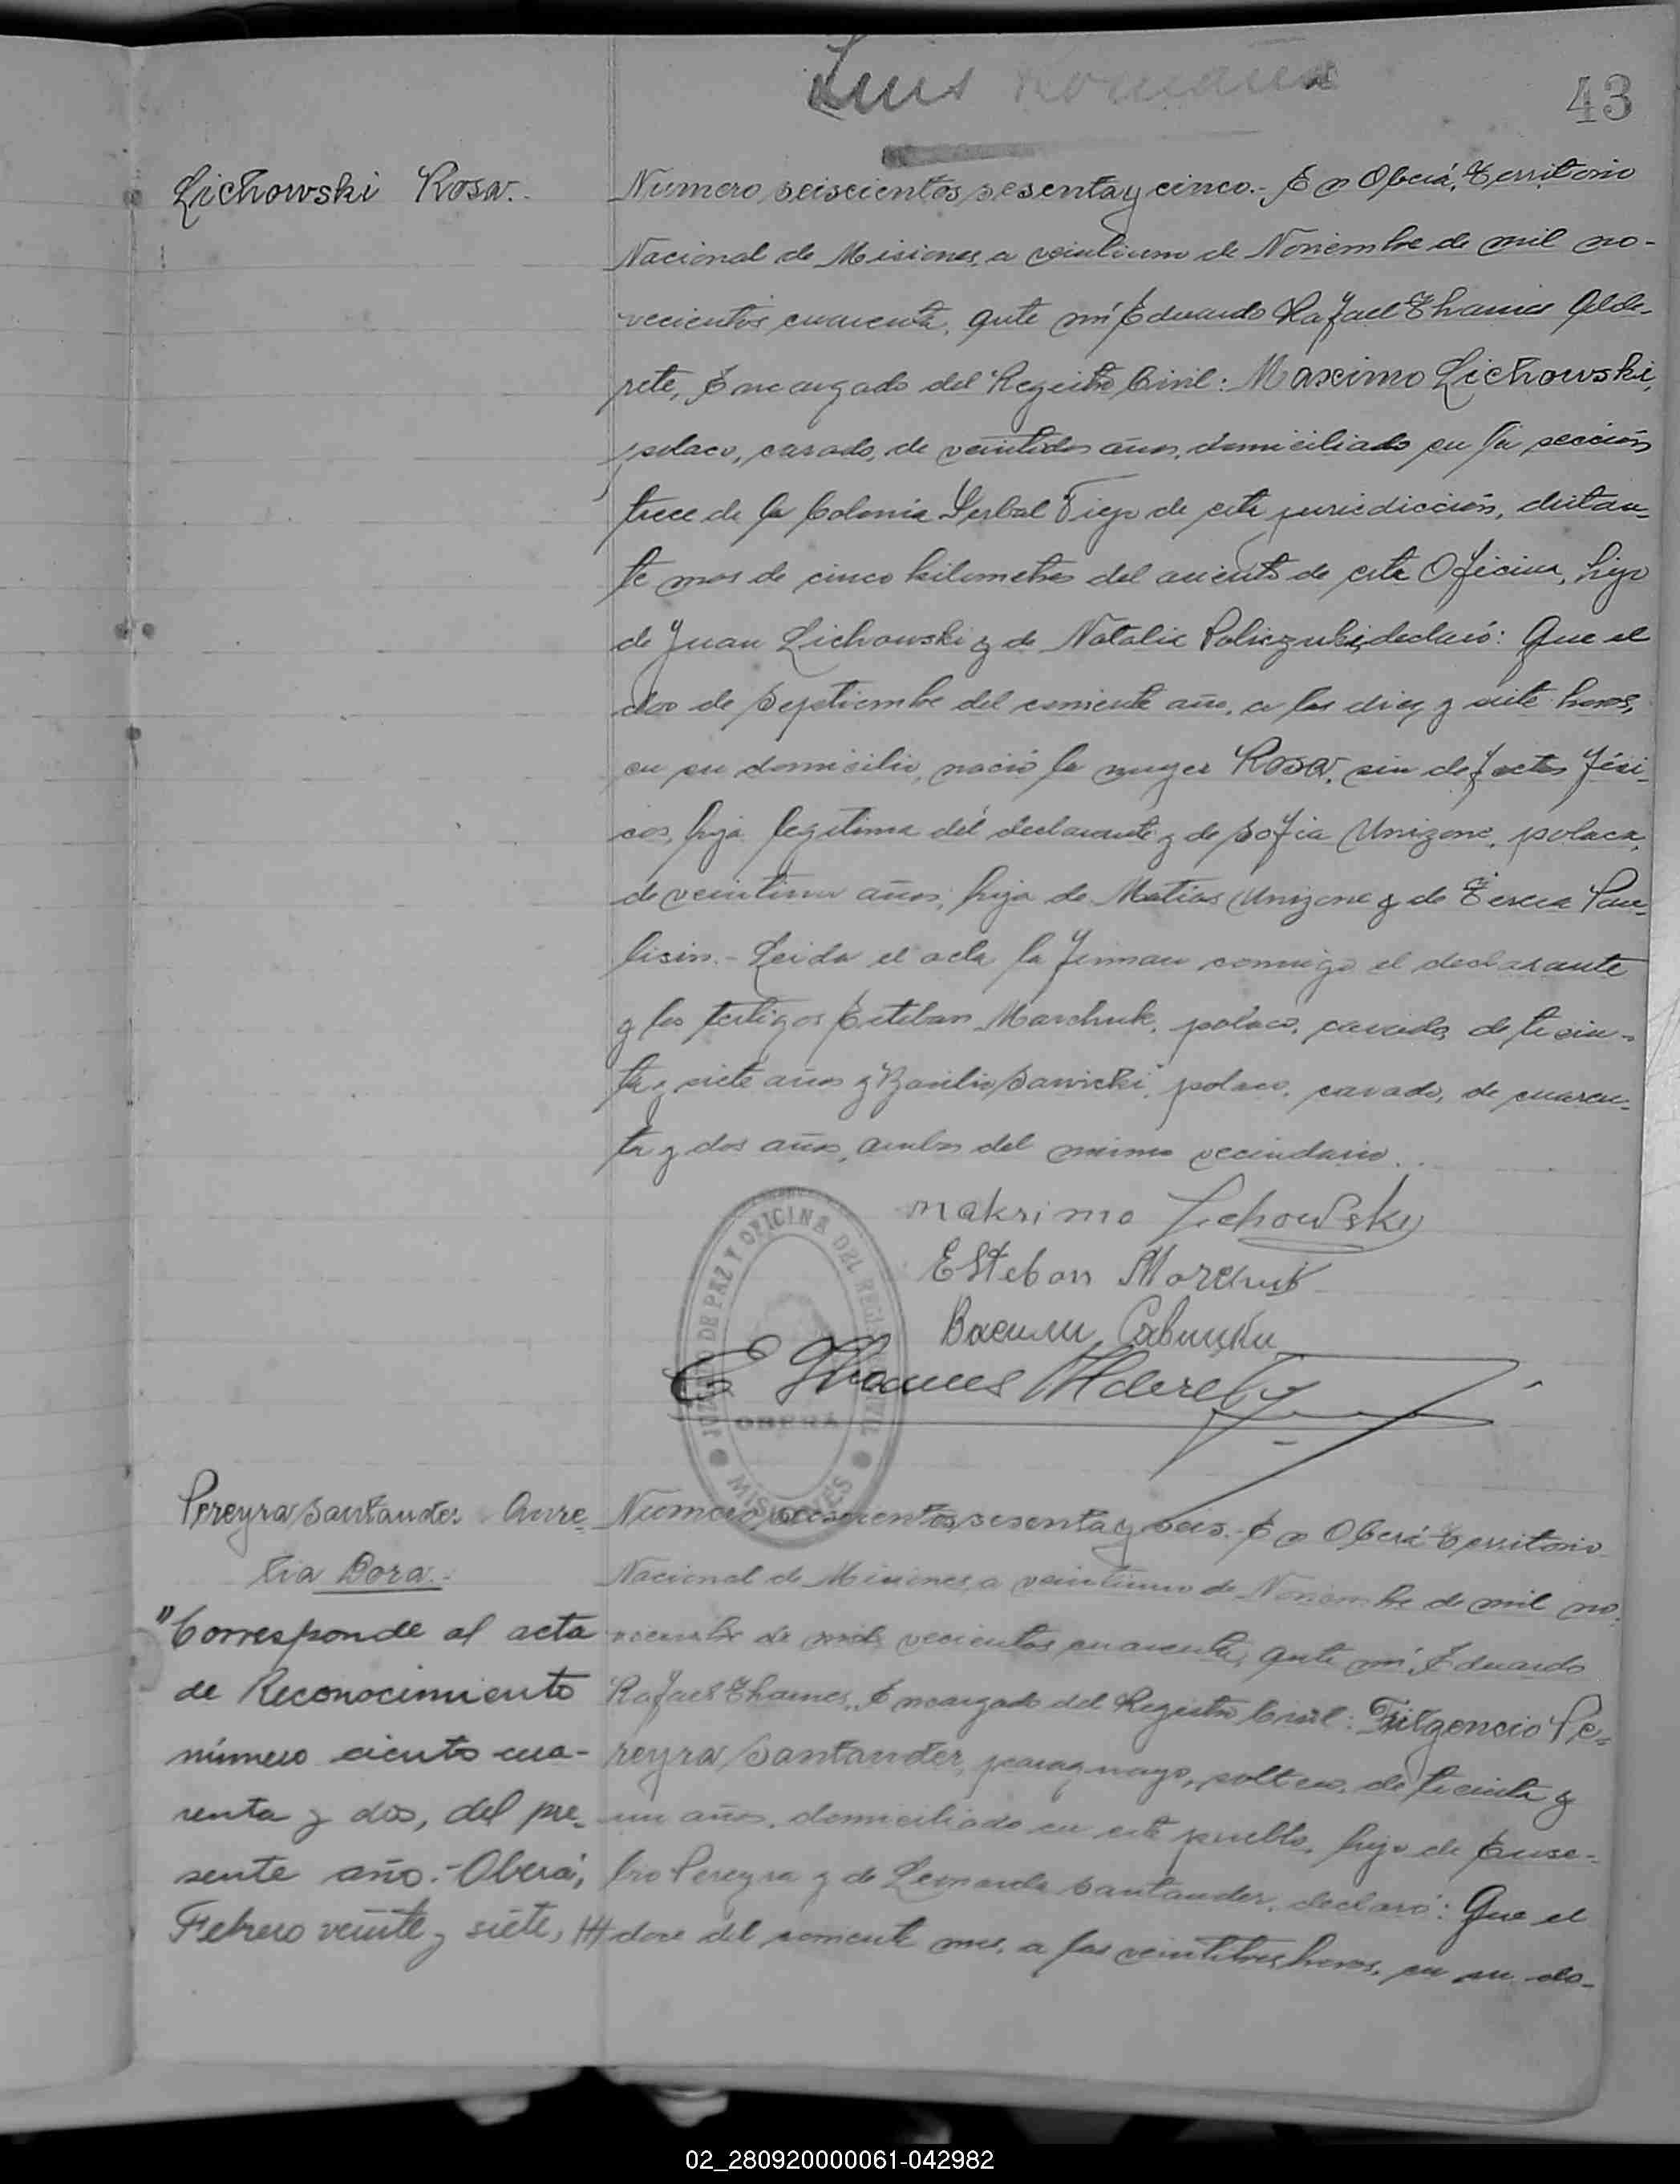 Luis Romaña
43
Lichowski Rosa.
Numero seiscientos sesenta y cinco.- En Oberá, Territorio
Nacional de Misiones, a veintiuno de Noviembre de mil no-
vecientos cuarenta, ante mi Eduardo Rafael Thames Alde-
rete, Encargado del Registro Civil: Maximo Lichowski,
polaco, casado, de veintidos años, domiciliado en la sección
trece de la Colonia Yerbal Viejo de esta jurisdicción, distan-
te mas de cinco kilometros del asiento de esta Oficina, hijo
de Juan Lichowski y de Natalia declaró: Que el
dos de Septiembre del corriente año, a las diez y siete horas,
en su domicilio, nació la mujer Rosa, sin defectos físi-
cos, hija legitima del declarante y de Sofia Unizone, polaca,
de veintiun años, hija de Matias Unizone y de Teresa Pau-
lisin.- Leida el acta la firman conmigo el declarante
y los testigos Esteban Marchuk, polaco, casado, de trein-
ta y siete años y Basilio Sawicki, polaco, casado, de cuaren-
ta y dos años, ambos del mismo vecindario.
makrimo Lichowsky
Esteban Marchuk
Васили Савицки
E Thames Alderete
JUZGADO DE PAZ Y OFICINA DEL REGISTRO CIVIL
OBERÁ
MISIONES
Pereyra Santander Aure-
lia Dora.-
"Corresponde al acta
de Reconocimiento
número ciento cua-
renta y dos, del pre-
sente año.- Oberá,
Febrero veinte y siete, ///
Numero seiscientos sesenta y seis.- En Oberá Territorio
Nacional de Misiones, a veintiuno de Noviembre de mil no-
viembre de mil vecientos cuarenta, ante mi, Eduardo
Rafael Thames, Encargado del Registro Civil: Fulgencio Pe-
reyra Santander, paraguayo, soltero, de treinta y
un años, domiciliado en este pueblo, hijo de Euse-
bio Pereyra y de Leonarda Santander, declaró: Que el
doce del corriente mes, a las veintitres horas, en su do-
02_280920000061-042982